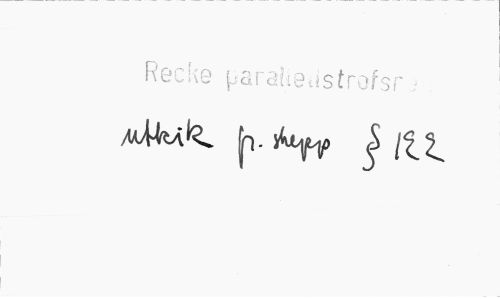 Recke parallellstrofsr
utkik fr. skepp § 122